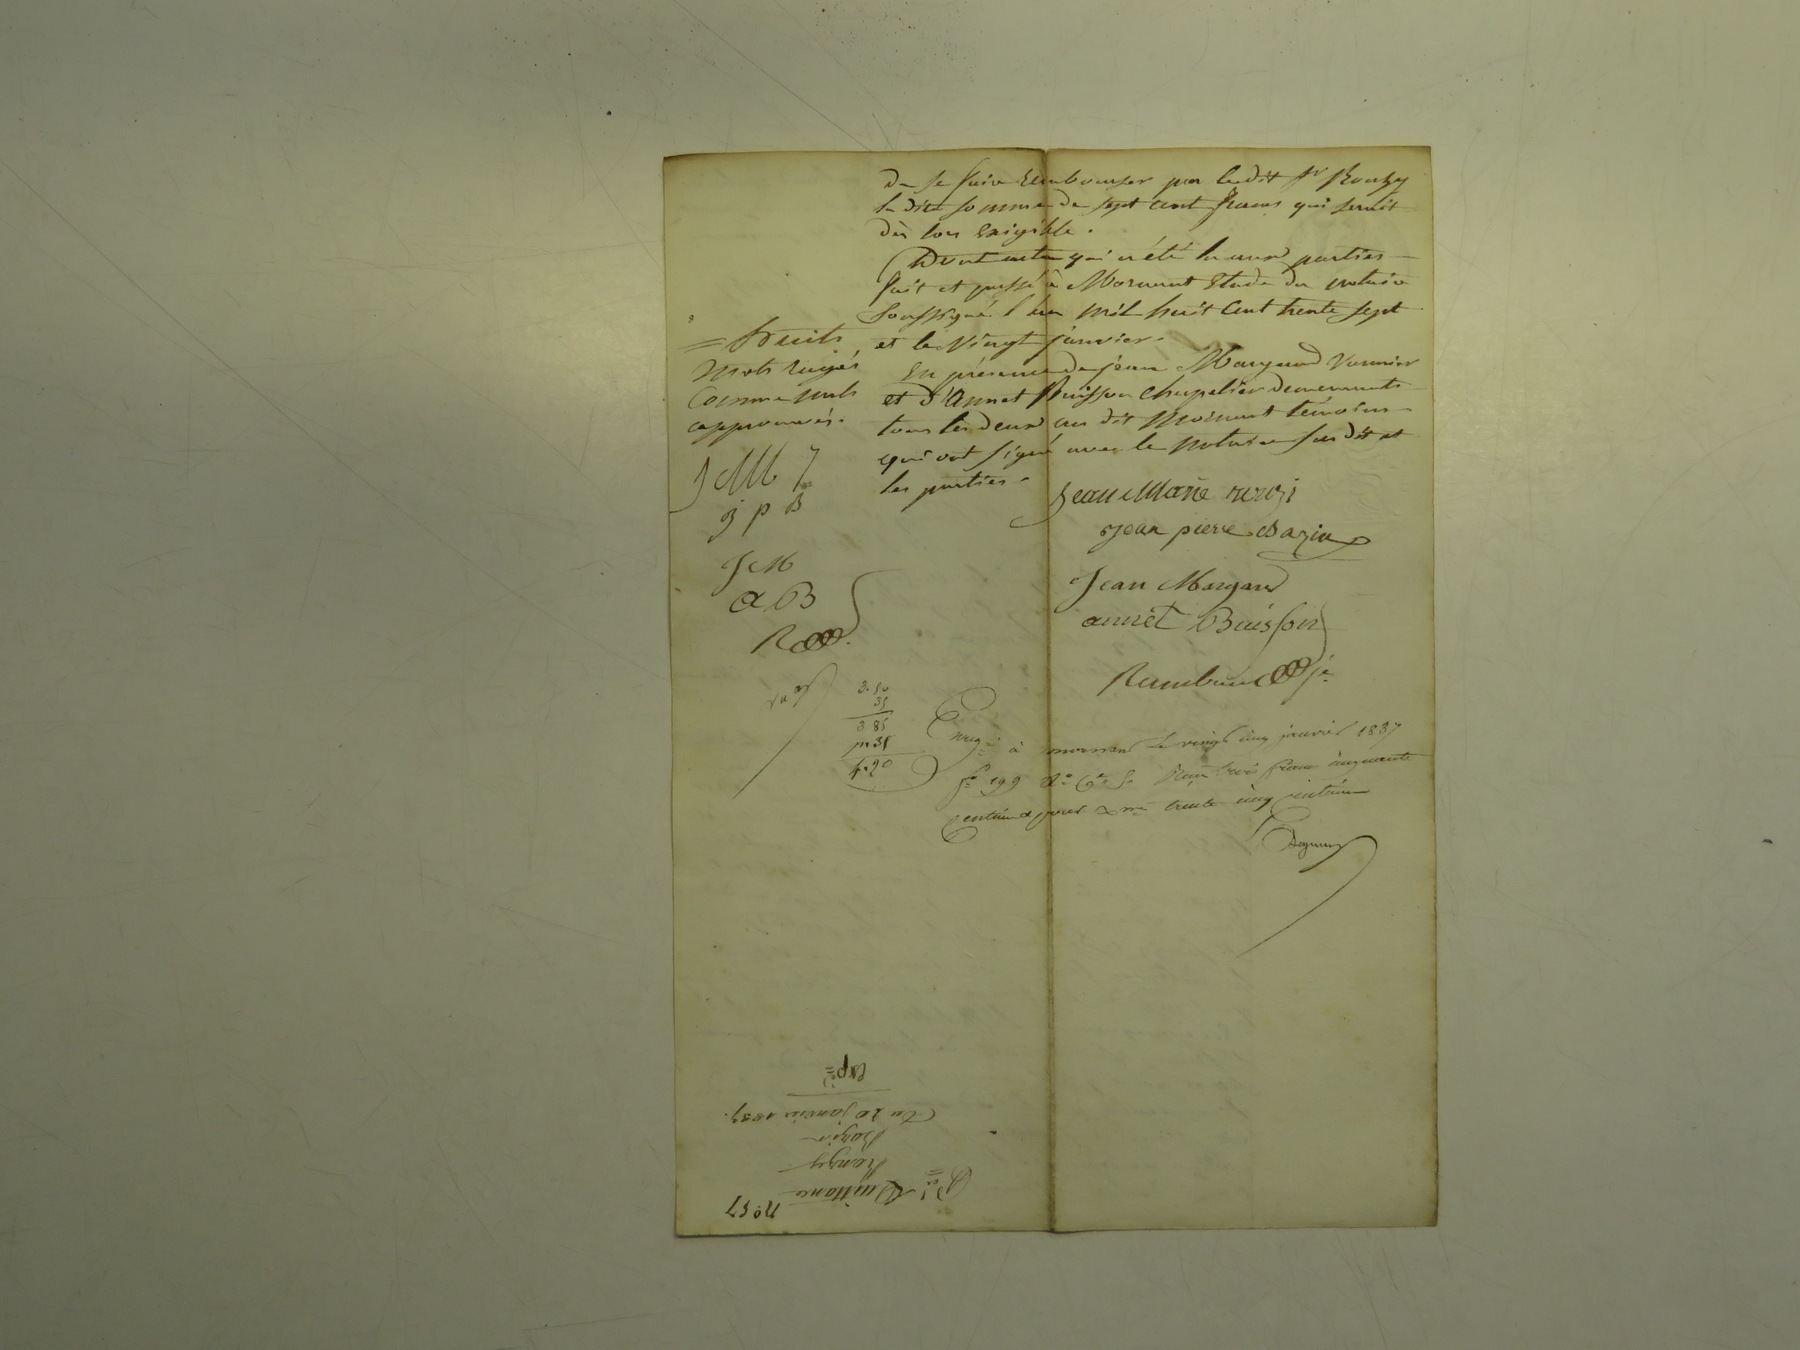 de se faire rembourser par ledit Sr Ronzy
la dite somme de sept cent francs qui serait
dès lors exigible.
Dont acte qui a été lu aux parties
fait et passé à Mornant Etude du notaire
soussigné l'an mil huit cent trente sept
et le vingt janvier.
En présence de jean Margand
et d'Annet Buisson chapelier demeurants
tous les deux au dit Mornant témoins
qui ont signé avec le notaire susdit et
les parties.
mots rayés
comme nuls
approuvés.
JMJ
j p B
JM
a B
R
Jean Marie
jean pierre Bazin
Jean Margand
annet Buisson
3.50
35
3 85
m 35
4.20
Enregé à mornant le vingt cinq janvier 1837
fo 199 Ro Ce 5. Reçu trois francs cinquante
centimes pour trente cinq centimes
No 57
Quittance
Ronzy
Bazin
Du 20 janvier 1837.
Expée